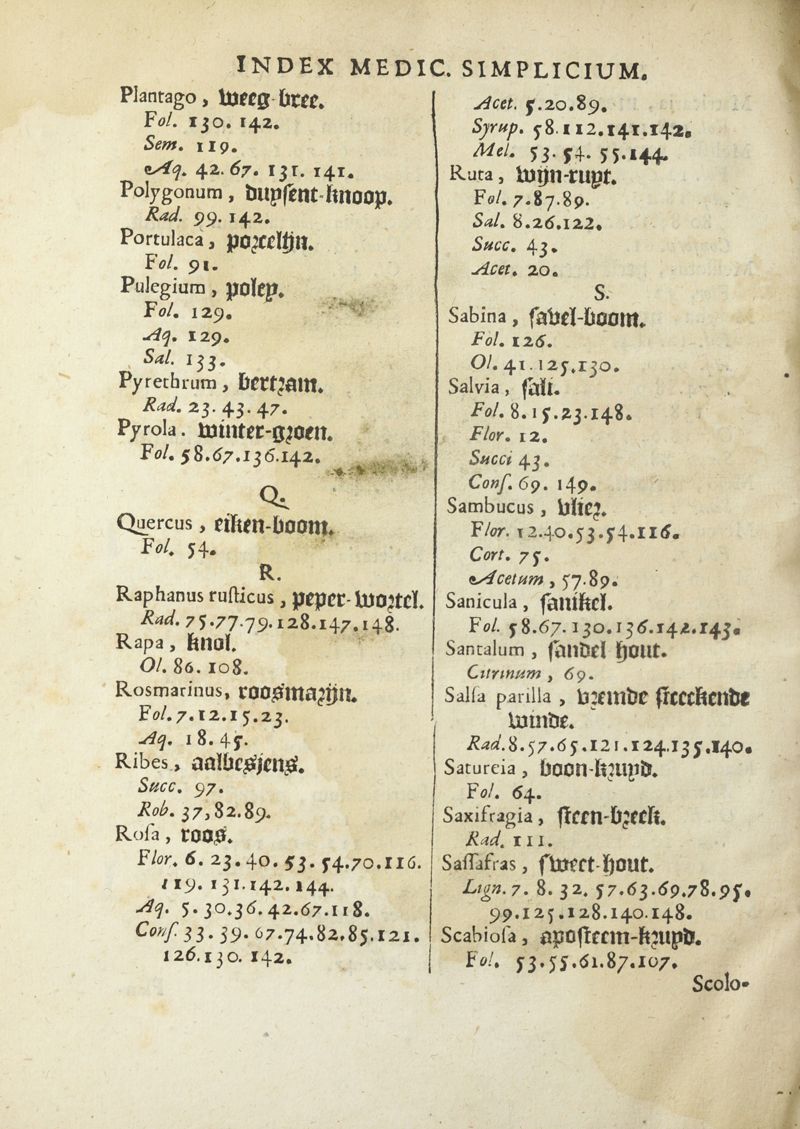 INDEX MEDIC. SIMPLICIUM.
Plantago, weeg-bree.
Fol. 130. 142.
Sem. 119.
Aq. 42. 67. 131. 141.
Polygonum, duysent-knoop.
Rad. 99. 142.
Portulaca, porcelijn.
Fol. 91.
Pulegium, poley.
Fol. 129.
Aq. 129.
Sal. 133.
Pyrethrum, bertram.
Rad. 23. 43. 47.
Pyrola. winter-groen.
Fol. 58.67.136.142.
Q.
Quercus, eiken-boom.
Fol. 54.
R.
Raphanus rusticus, peper-wortel.
Rad. 75.77.79.128.147.148.
Rapa, knol.
Ol. 86. 108.
Rosmarinus, roosmarijn.
Fol. 7.12.15.23.
Aq. 18. 45.
Ribes, aalbesjens.
Succ. 97.
Rob. 37,82.89.
Rosa, roos.
Flor. 6. 23. 40. 53. 54.70.116.
119. 131.142. 144.
Aq. 5. 30.36. 42.67.118.
Conf. 33. 39. 67.74.82.85.121.
126.130. 142.
Acet. 5.20.89.
Syrup. 58.112.141.142.
Mel. 53. 54. 55.144.
Ruta, wijn-ruyt.
Fol. 7.87.89.
Sal. 8.26.122.
Succ. 43.
Acet. 20.
S.
Sabina, savel-boom.
Fol. 126.
Ol. 41.125.130.
Salvia, sali.
Fol. 8.15.23.148.
Flor. 12.
Succi 43.
Conf. 69. 149.
Sambucus, vlier.
Flor. 12.40.53.54.116.
Cort. 75.
Acetum, 57.89.
Sanicula, sanikel.
Fol. 58.67.130.136.142.143.
Santalum, sandel hout.
Citrinum, 69.
Salsa parilla, vremde steekende
winde.
Rad. 8.57.65.121.124.135.140.
Satureia, boon-kruyd.
Fol. 64.
Saxifragia, steen-breek.
Rad. 111.
Sassafras, sweet-hout.
Lign. 7. 8. 32. 57.63.69.78.95.
99.125.128.140.148.
Scabiosa, aposteem-kruyd.
Fol. 53.55.61.87.107.
Scolo-